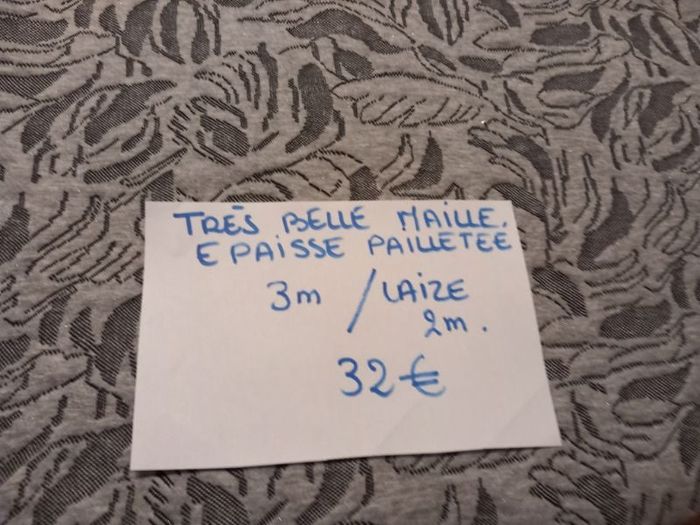 TRÈS BELLE MAILLE.
EPAISSE PAILLETEE
3m / LAIZE
2m.
32€